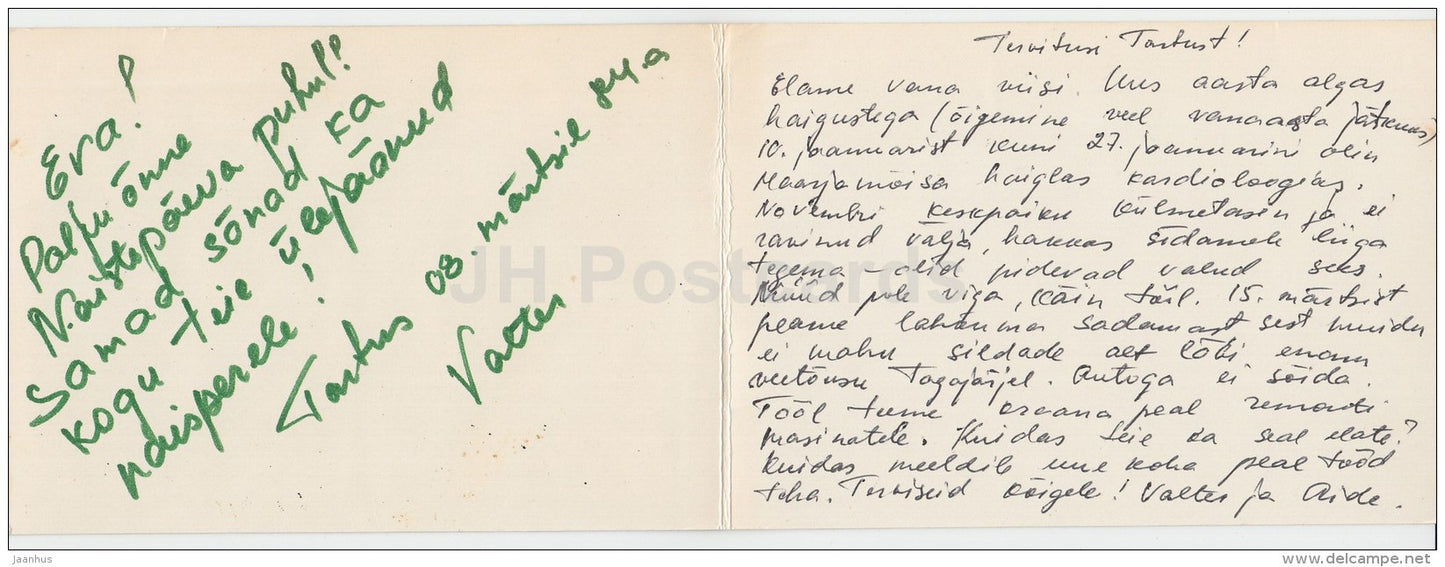 Eva!
Palju õnne
Naistepäeva puhul!
Samad sõnad ka
kogu teie ülejäänud
naisperele!
Tartus 08. märtsil 84.a
Valter
Tervitusi Tartust!
Elame vana viisi. Uus aasta algas
haigustega (õigemine veel vanaasta jätkus)
10. jaanuarist kuni 27. jaanuarini olin
Maarjamõisa haiglas kardioloogias.
Novembri keskpaiku külmetasin ja ei
ravinud välja, hakkas südamele liiga
tegema – olid pidevad valud sees.
Nüüd pole viga, käin tööl. 15. märtsist
peame lahkuma sadamast sest muidu
ei mahu sildade alt läbi enam
veetõusu tagajärjel. Autoga ei sõida.
Tööl teeme kraana peal remonti
masinatele. Kuidas teie ka seal elate?
Kuidas meeldib uue koha peal tööd
teha. Terviseid kõigile! Valter ja Aide.
JH Postcards
jaanhus
www.delcampe.net